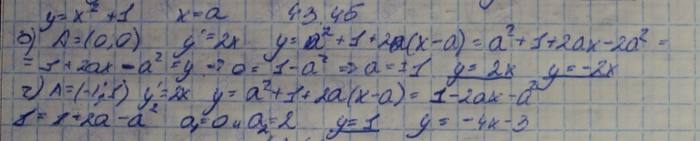 y=x²+1 x=a 43.46
б) A=(0,0) y'=2x y=a²+1+2a(x-a)=a²+1+2ax-2a²=
=1+2ax-a²=y → 0=1-a² ⇒ a=±1 y=2x y=-2x
г) A=(-1;1) y'=2x y=a²+1+2a(x-a)=1-2ax-a²
1=1+2a-a² a₁=0 и a₂=2 y=1 y=-4x-3